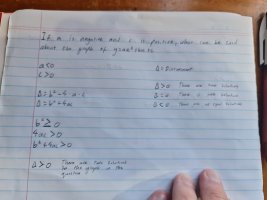 If a is negative and c is positive, what can be said
about the graph of y=ax²+bx+c
a<0
c>0
Δ = Discriminant
Δ>0 There are two solutions
Δ=0 There is one solution
Δ<0 There are no real solutions
Δ=b²-4·a·c
Δ=b²+4ac
b²≥0
4ac>0
b²+4ac>0
Δ>0 There are two solutions
for the graph in the
question